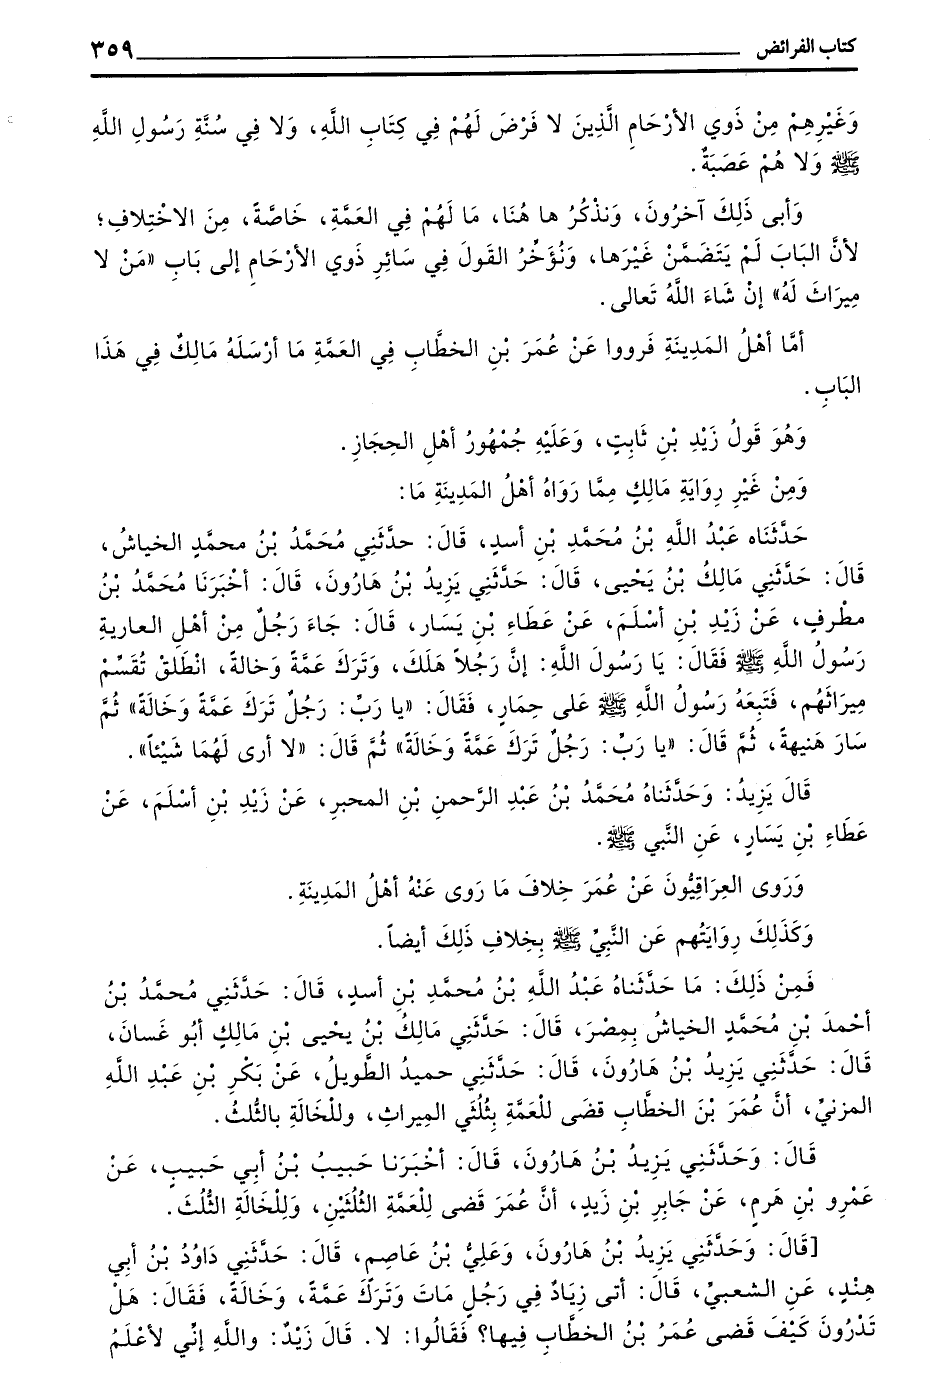 كتاب الفرائض ٣٥٩
وَغَيْرِهِمْ مِنْ ذَوِي الأَرْحَامِ الَّذِينَ لا فَرْضَ لَهُمْ فِي كِتَابِ اللَّهِ، وَلا فِي سُنَّةِ رَسُولِ اللَّهِ
ﷺ وَلا هُمْ عَصَبَةٌ.
وَأبى ذَلِكَ آخَرُونَ، وَنذْكُرُ ها هُنَا، مَا لَهُمْ فِي العَمَّةِ، خَاصَّةً، مِنَ الاخْتِلافِ؛
لأنَّ البَابَ لَمْ يَتَضَمَّنْ غَيْرَها، وَنُؤَخِّرُ القَولَ فِي سَائِرِ ذَوِي الأرْحَامِ إلى بَابِ «مَنْ لا
مِيرَاثَ لَهُ» إنْ شَاءَ اللَّهُ تَعالى.
أمَّا أهْلُ المَدِينَةِ فَرووا عَنْ عُمَرَ بْنِ الخطَّابِ فِي العَمَّةِ مَا أرْسَلَهُ مَالِكٌ فِي هَذَا
البَابِ.
وَهُوَ قَولُ زَيْدِ بْنِ ثَابِتٍ، وَعَلَيْهِ جُمْهُورُ أهْلِ الحِجَازِ.
وَمِنْ غَيْرِ رِوَايَةِ مَالِكٍ مِمَّا رَوَاهُ أهْلُ المَدِينَةِ مَا:
حَدَّثَنَاه عَبْدُ اللَّهِ بْنُ مُحَمَّدِ بْنِ أسدٍ، قَالَ: حدَّثَنِي مُحَمَّدُ بْنُ محمَّدٍ الخياشُ،
قَالَ: حَدَّثَنِي مَالِكُ بْنُ يَحْيى، قَالَ: حَدَّثَنِي يَزِيدُ بْنُ هَارُونَ، قَالَ: أخْبَرَنَا مُحَمَّدُ بْنُ
مطْرفٍ، عَنْ زَيْدِ بْنِ أسْلَمَ، عَنْ عَطَاءِ بْنِ يَسَارٍ، قَالَ: جَاءَ رَجُلٌ مِنْ أهْلِ العاريةِ
رَسُولُ اللَّهِ ﷺ فَقَالَ: يَا رَسُولَ اللَّهِ: إنَّ رَجُلاً هَلَكَ، وَتَرَكَ عَمَّةً وَخالةً، انْطَلقْ تُقَسِّم
مِيرَاثَهُم، فَتَبِعَهُ رَسُولُ اللَّهِ ﷺ عَلى حِمَارٍ، فَقَالَ: «يا رَبِّ: رَجُلٌ تَرَكَ عَمَّةً وَخَالَةً» ثُمَّ
سَارَ هَنِيهةً، ثُمَّ قَالَ: «يا رَبِّ: رَجُلٌ تَرَكَ عَمَّةً وَخَالَةً» ثُمَّ قَالَ: «لا أرى لَهُمَا شَيْئاً».
قَالَ يَزِيدُ: وَحَدَّثَناهُ مُحَمَّدُ بْنُ عَبْدِ الرَّحمنِ بْنِ المحبرِ، عَنْ زَيْدِ بْنِ أسْلَمَ، عَنْ
عَطَاءِ بْنِ يَسَارٍ، عَنِ النَّبي ﷺ.
وَرَوى العِرَاقِيُّونَ عَنْ عُمَرَ خِلافَ مَا رَوى عَنْهُ أهْلُ المَدِينَةِ.
وَكَذَلِكَ رِوَايَتُهم عَنِ النَّبِيِّ ﷺ بِخِلافِ ذَلِكَ أيضاً.
فَمِنْ ذَلِكَ: مَا حَدَّثَناهُ عَبْدُ اللَّهِ بْنُ مُحمَّدِ بْنِ أسدٍ، قَالَ: حَدَّثَنِي مُحمَّدُ بْنُ
أحْمدَ بْنِ مُحَمَّدٍ الخياشُ بِمِصْرَ، قَالَ: حَدَّثَنِي مَالِكُ بْنُ يحْيى بْنِ مَالِكٍ أبُو غَسانَ،
قَالَ: حَدَّثَنِي يَزِيدُ بْنُ هَارُونَ، قَالَ: حَدَّثَنِي حميدُ الطَّويلُ، عَنْ بَكْرِ بْنِ عَبْدِ اللَّهِ
المزنيِّ، أنَّ عُمَرَ بْنَ الخطَّابِ قضَى للْعَمَّةِ بِثُلُثَي المِيراثِ، وللْخَالَةِ بالثُّلثُ.
قَالَ: وَحَدَّثَنِي يَزِيدُ بْنُ هَارُونَ، قَالَ: أخْبَرَنا حَبيبُ بْنُ أبِي حَبيبٍ، عَنْ
عَمْرِو بْنِ هَرمٍ، عَنْ جَابِرِ بْنِ زَيدٍ، أنَّ عُمَرَ قَضى لِلْعَمَّةِ الثُّلُثَيْنِ، وَلِلْخَالَةِ الثُّلُثَ.
[قَالَ: وَحَدَّثَنِي يَزِيدُ بْنُ هَارُونَ، وَعَلِيُّ بْنُ عَاصِمٍ، قَالَ: حَدَّثَنِي دَاوُدُ بْنُ أبِي
هِنْدٍ، عَنِ الشعبيِّ، قَالَ: أتى زِيَادٌ فِي رَجُلٍ مَاتَ وَتَرَكَ عَمَّةً، وَخَالَةً، فَقَالَ: هَلْ
تَدْرُونَ كَيْفَ قَضى عُمَرُ بْنُ الخطَّابِ فِيها؟ فَقَالُوا: لا. قَالَ زَيْدٌ: واللَّهِ إنِّي لأعْلَمُ